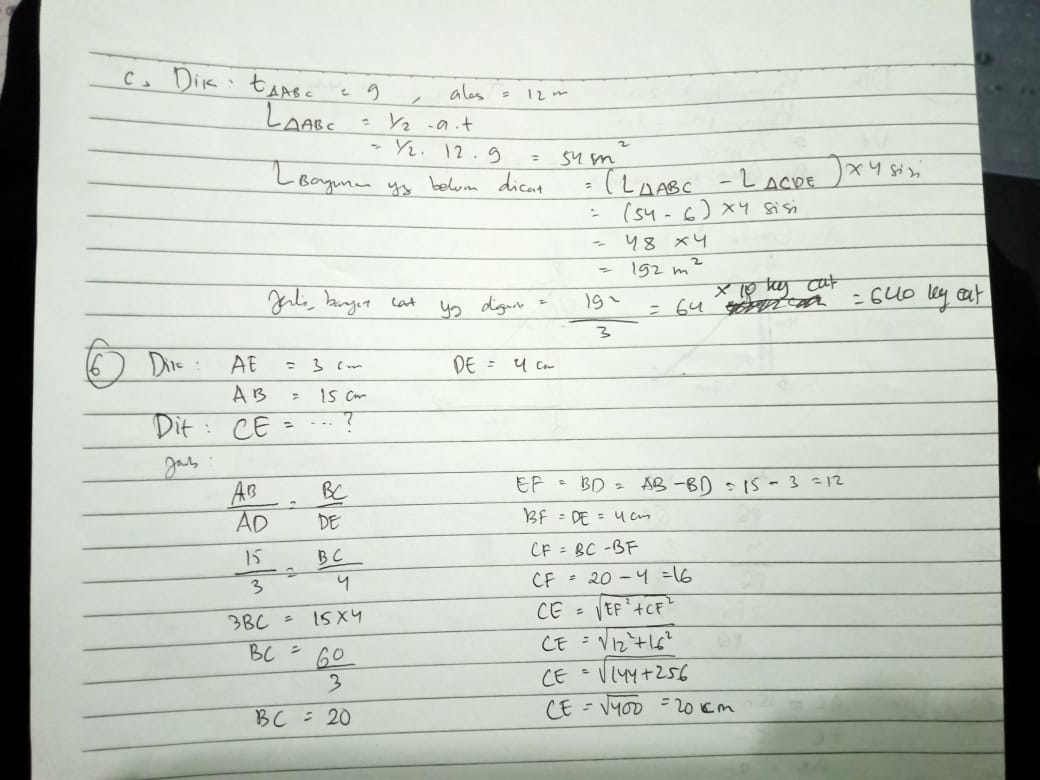 c. Dik : t△ABC = 9 , alas = 12 m
L△ABC = 1/2 . a . t
= 1/2 . 12 . 9 = 54 m²
L Bangunan yg belum dicat = (L△ABC - L△CDE) x 4 sisi
= (54 - 6) x 4 sisi
= 48 x 4
= 192 m²
Jadi, banyak cat yg digun = 192/3 = 64 x 10 kg cat = 640 kg cat
6 Dik : AE = 3 cm DE = 4 cm
AB = 15 cm
Dit : CE = ... ?
Jwb :
AB/AD = BC/DE
15/3 = BC/4
3BC = 15 x 4
BC = 60/3
BC = 20
EF = BD = AB - BD = 15 - 3 = 12
BF = DE = 4 cm
CF = BC - BF
CF = 20 - 4 = 16
CE = √EF² + CF²
CE = √12² + 16²
CE = √144 + 256
CE = √400 = 20 cm